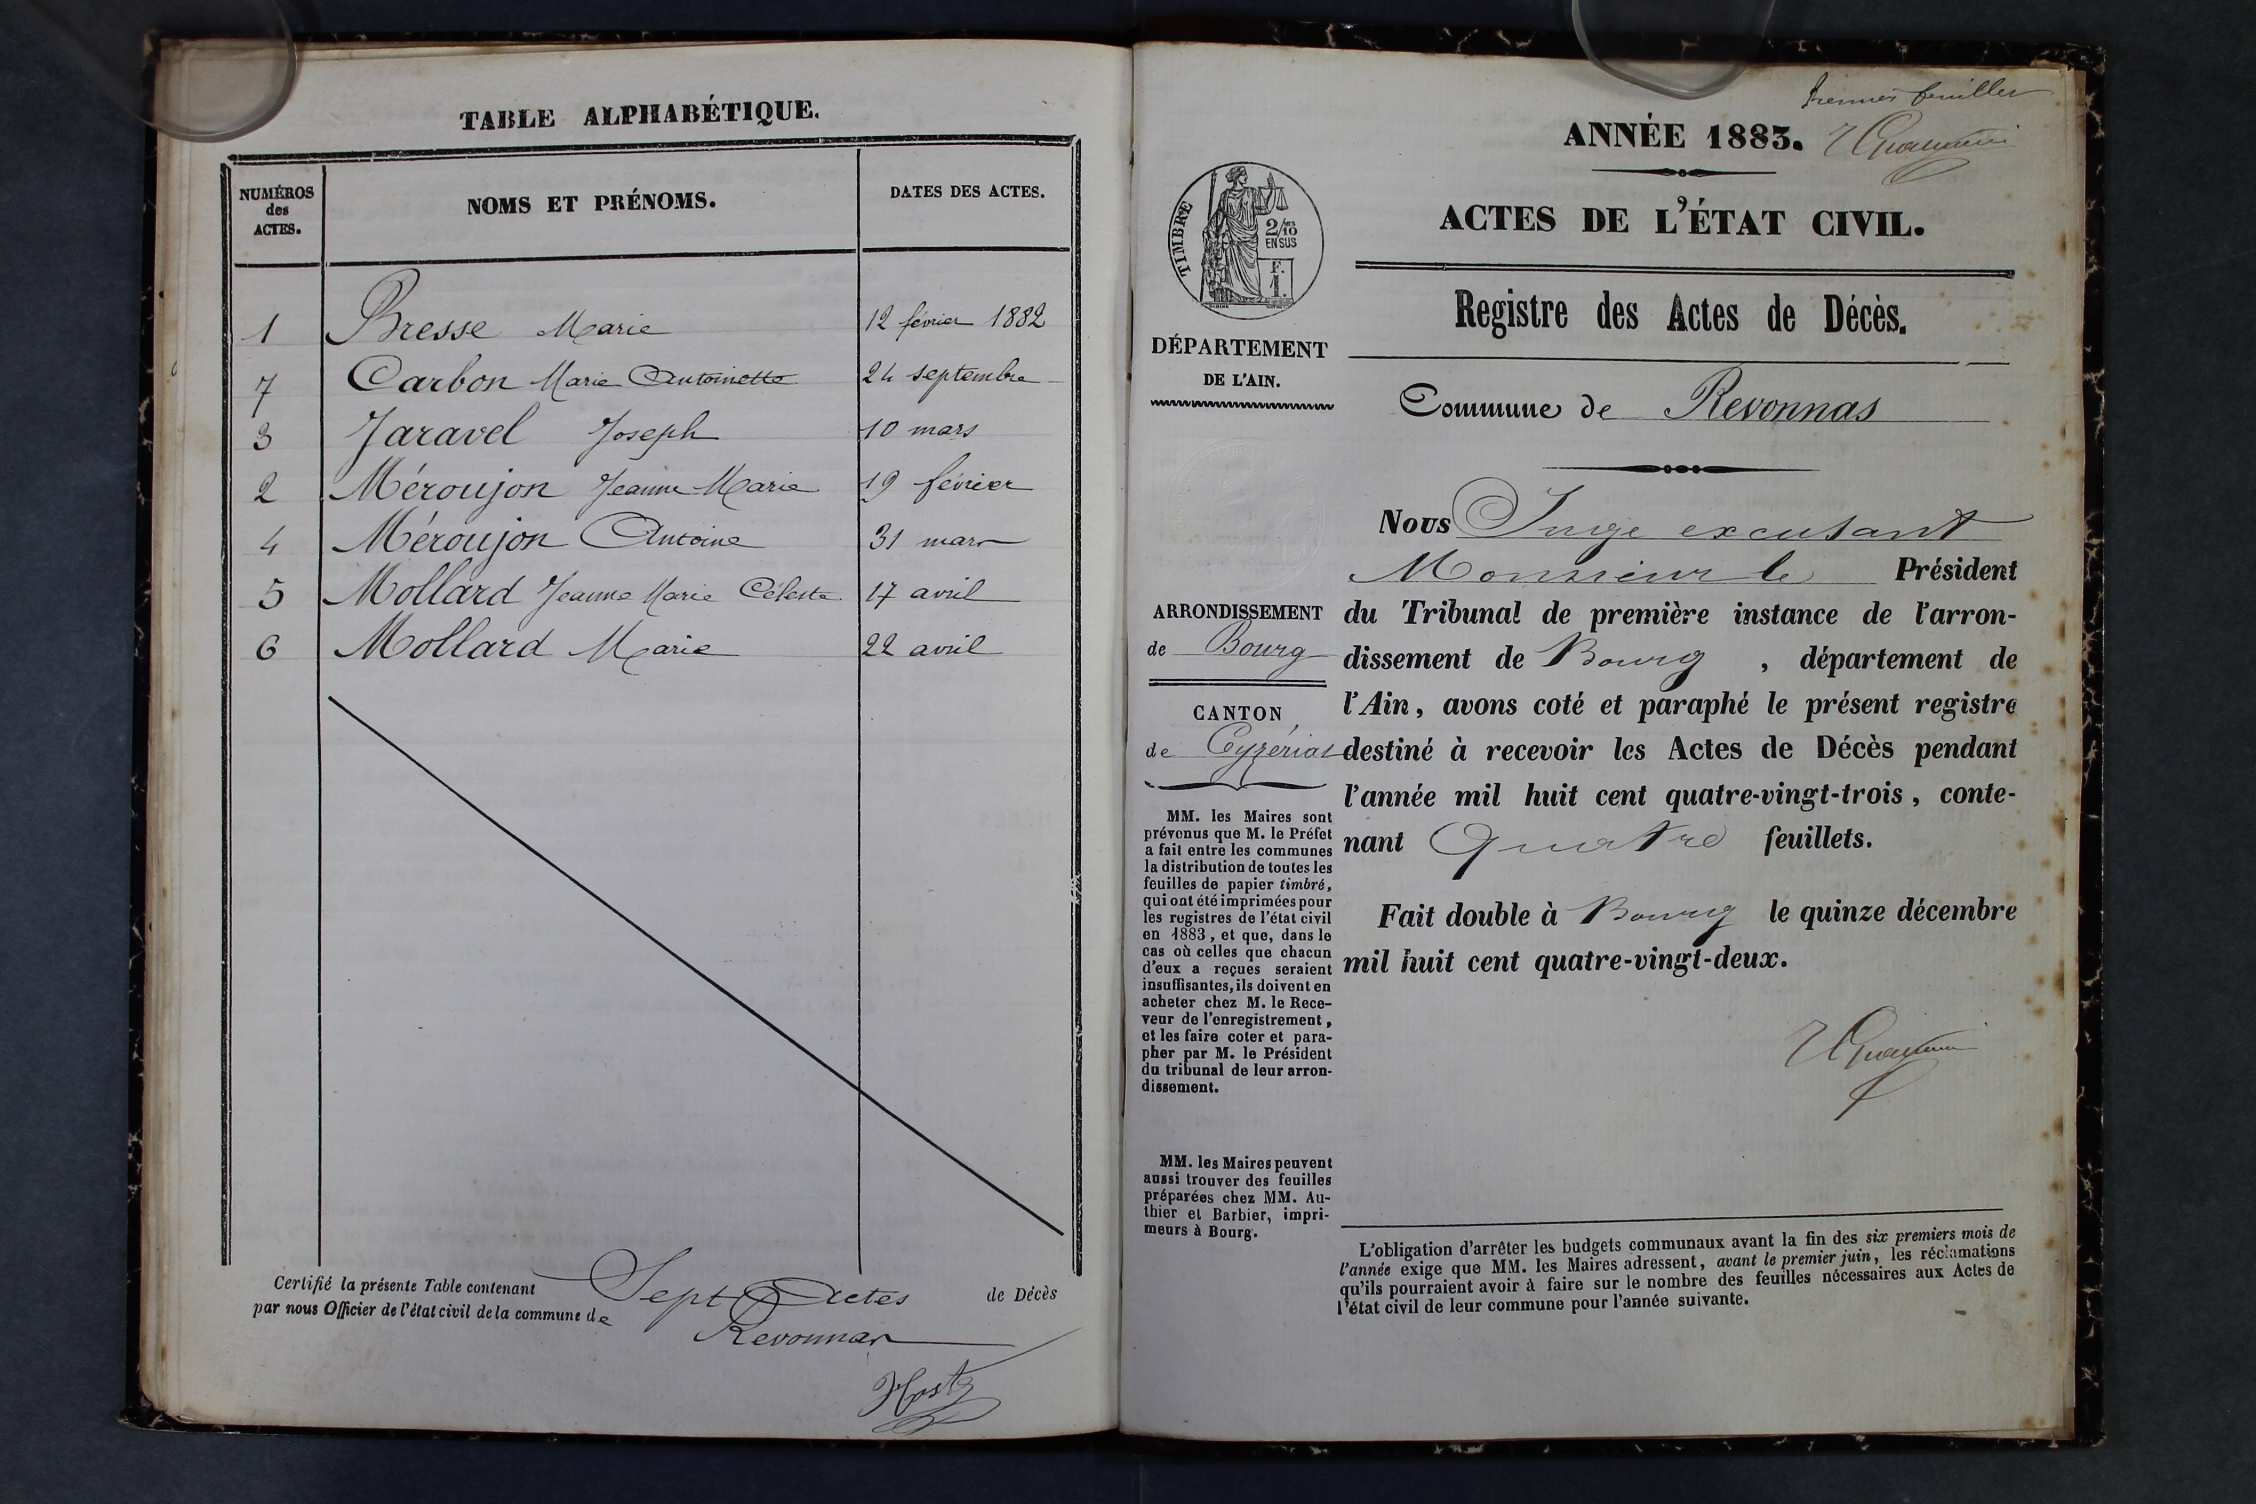 TABLE ALPHABÉTIQUE.
NUMÉROS des ACTES. NOMS ET PRÉNOMS. DATES DES ACTES.
1 Bresse Marie 12 février 1882
7 Carbon Marie Antoinette 24 septembre
3 Jaravel Joseph 10 mars
2 Méroujon Jeanne Marie 19 février
4 Méroujon Antoine 31 mars
5 Mollard Jeanne Marie Céleste 17 avril
6 Mollard Marie 22 avril
Certifié la présente Table contenant Sept Actes de Décès
par nous Officier de l'état civil de la commune de
Revonnas
Premier feuillet
ANNÉE 1883.
ACTES DE L'ÉTAT CIVIL.
Registre des Actes de Décès.
TIMBRE
2/10 EN SUS
F. 1.
DÉPARTEMENT
DE L'AIN.
ARRONDISSEMENT
de Bourg
CANTON
de Ceyzériat
MM. les Maires sont
prévenus que M. le Préfet
a fait entre les communes
la distribution de toutes les
feuilles de papier timbré,
qui ont été imprimées pour
les registres de l'état civil
en 1883, et que, dans le
cas où celles que chacun
d'eux a reçues seraient
insuffisantes, ils doivent en
acheter chez M. le Rece-
veur de l'enregistrement,
et les faire coter et para-
pher par M. le Président
du tribunal de leur arron-
dissement.
MM. les Maires peuvent
aussi trouver des feuilles
préparées chez MM. Au-
thier et Barbier, impri-
meurs à Bourg.
Commune de Revonnas
Nous Juge excusant
Monsieur le Président
du Tribunal de première instance de l'arron-
dissement de Bourg, département de
l'Ain, avons coté et paraphé le présent registre
destiné à recevoir les Actes de Décès pendant
l'année mil huit cent quatre-vingt-trois, conte-
nant quatre feuillets.
Fait double à Bourg le quinze décembre
mil huit cent quatre-vingt-deux.
L'obligation d'arrêter les budgets communaux avant la fin des six premiers mois de
l'année exige que MM. les Maires adressent, avant le premier juin, les réclamations
qu'ils pourraient avoir à faire sur le nombre des feuilles nécessaires aux Actes de
l'état civil de leur commune pour l'année suivante.